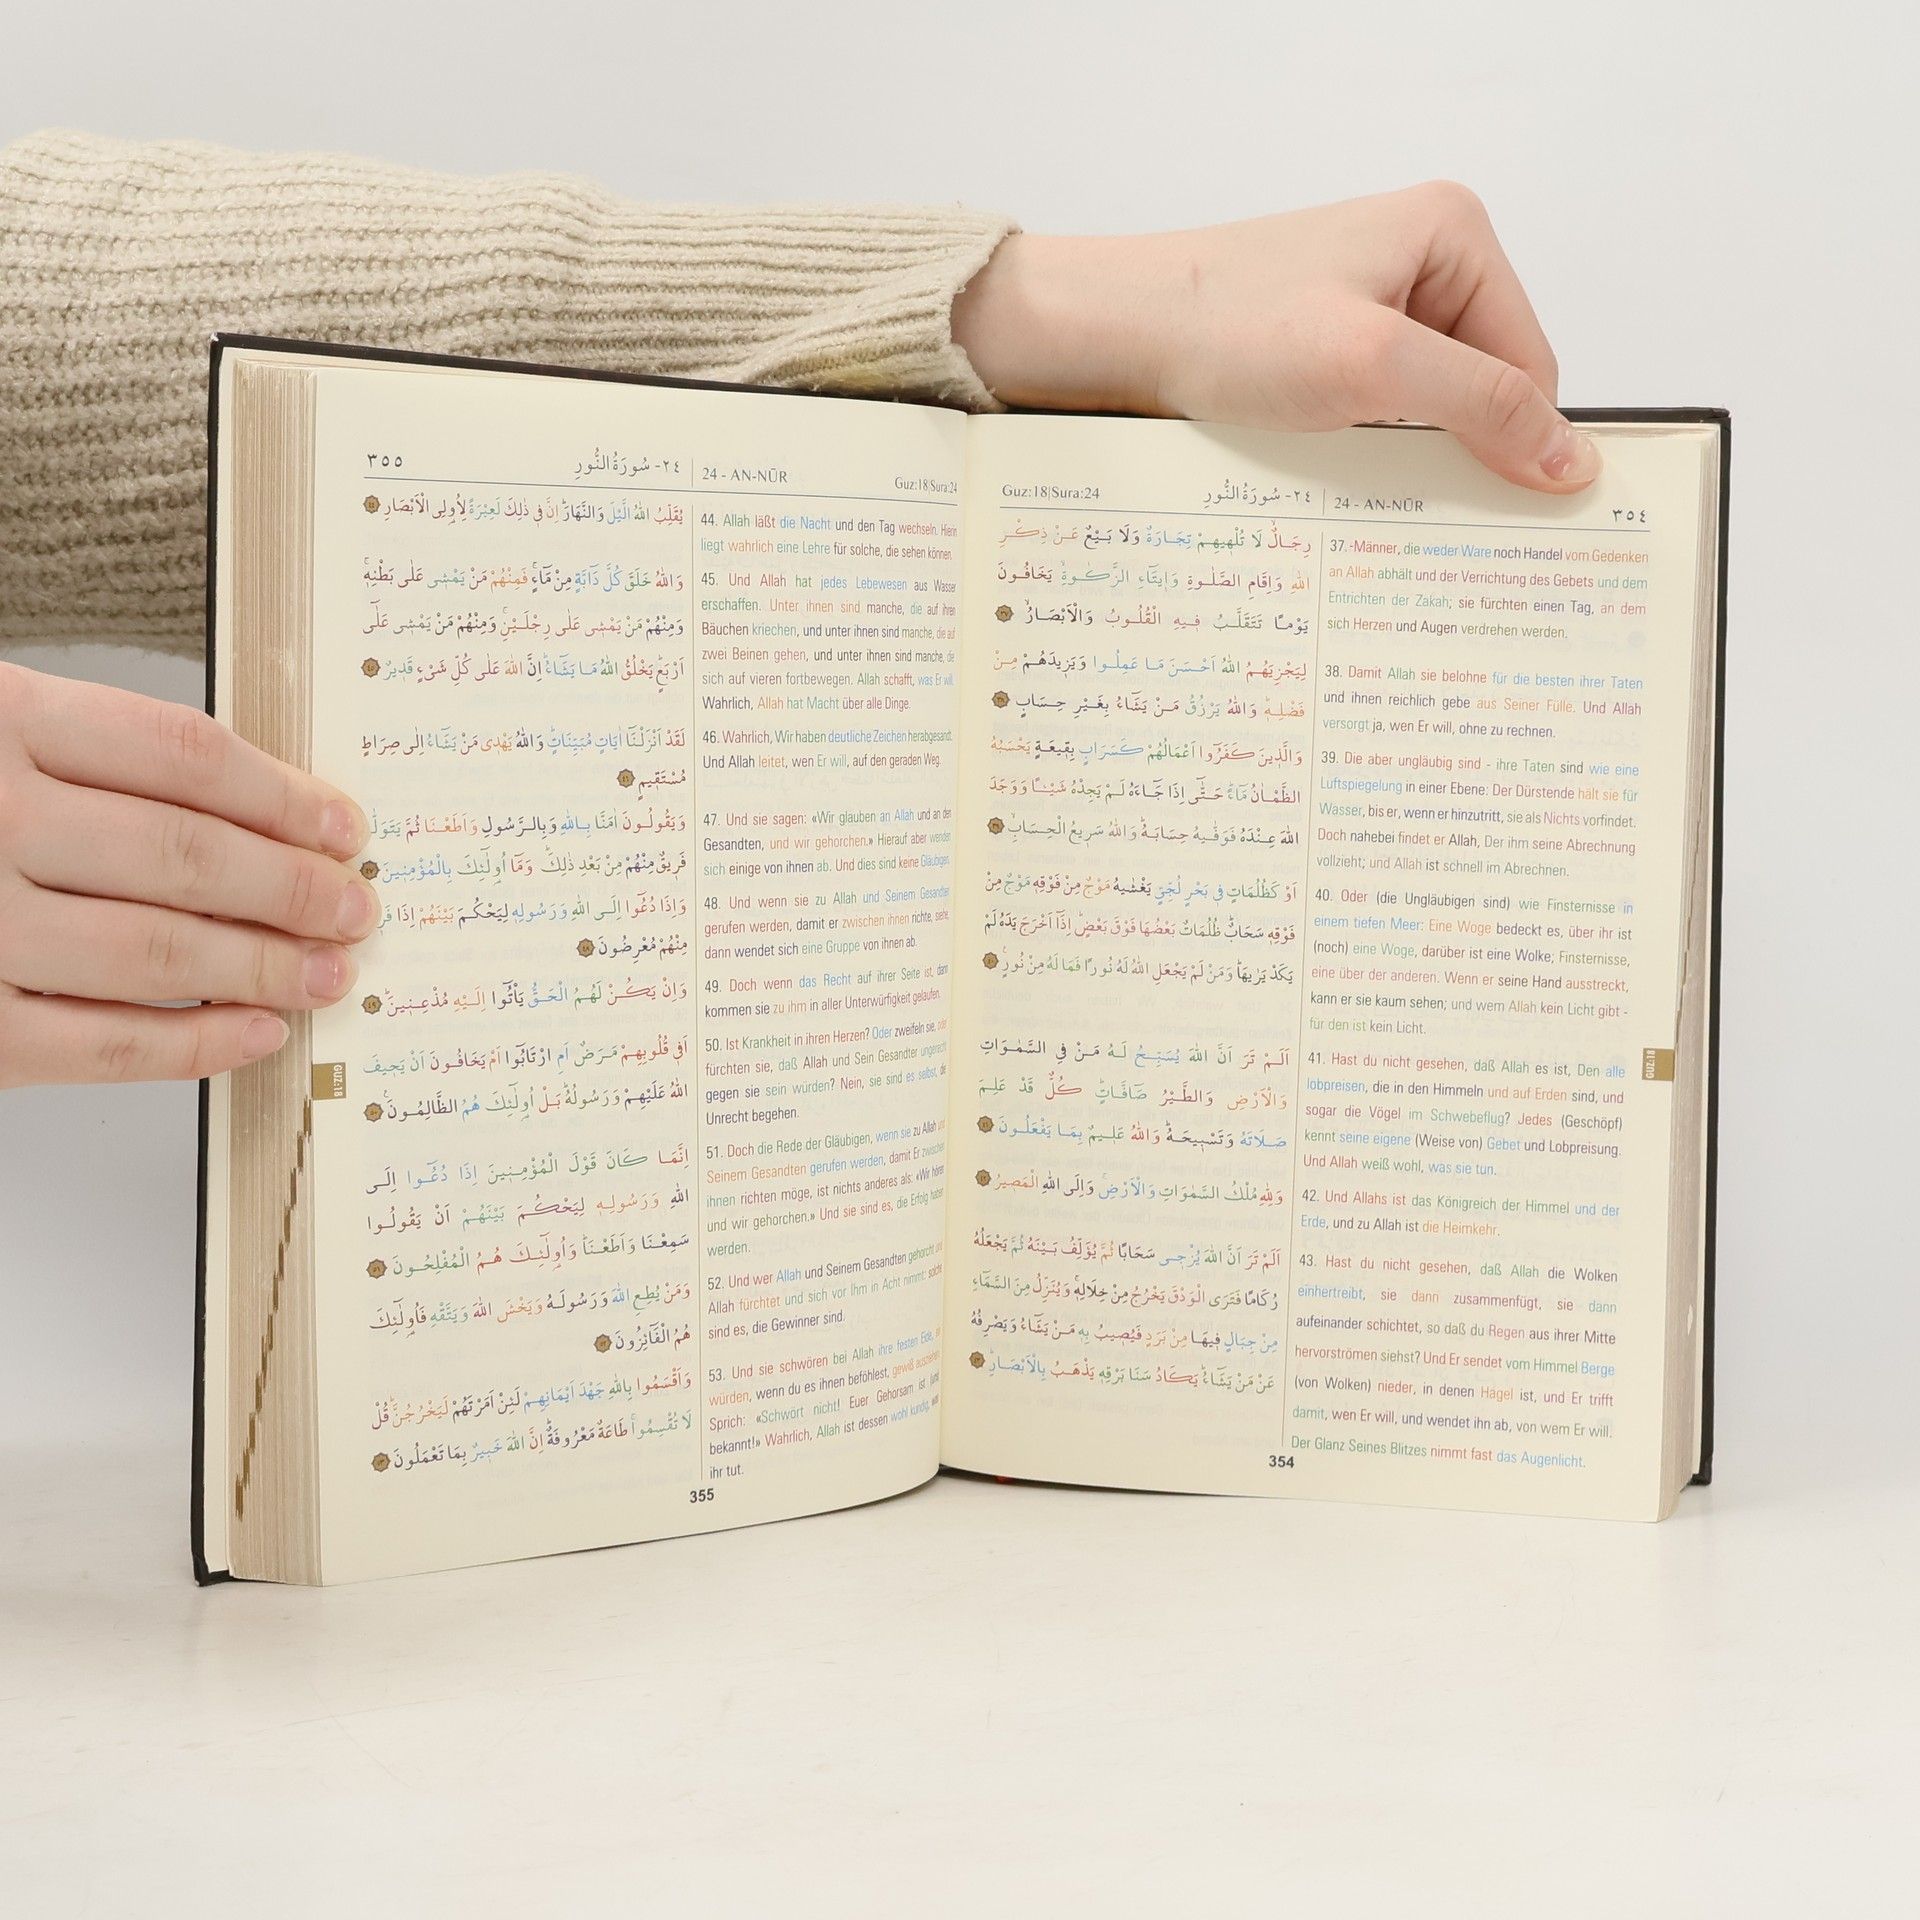 Guz:18|Sura:24
٢٤- سُورَةُ النُّورِ
24 - AN-NŪR
٣٥٤
رِجَالٌ لَا تُلْهٖيهِمْ تِجَارَةٌ وَلَا بَيْعٌ عَنْ ذِكْرِ
اللّٰهِ وَاِقَامِ الصَّلٰوةِ وَاٖيتَٓاءِ الزَّكٰوةِۙ يَخَافُونَ
يَوْمًا تَتَقَلَّبُ فٖيهِ الْقُلُوبُ وَالْاَبْصَارُۙ ٣٧
لِيَجْزِيَهُمُ اللّٰهُ اَحْسَنَ مَا عَمِلُوا وَيَزٖيدَهُمْ مِنْ
فَضْلِهٖؕ وَاللّٰهُ يَرْزُقُ مَنْ يَشَٓاءُ بِغَيْرِ حِسَابٍ ٣٨
وَالَّذٖينَ كَفَرُٓوا اَعْمَالُهُمْ كَسَرَابٍ بِقٖيعَةٍ يَحْسَبُهُ
الظَّمْاٰنُ مَٓاءًؕ حَتّٰٓى اِذَا جَٓاءَهُ لَمْ يَجِدْهُ شَيْـًٔا وَوَجَدَ
اللّٰهَ عِنْدَهُ فَوَفّٰيهُ حِسَابَهُؕ وَاللّٰهُ سَرٖيعُ الْحِسَابِۙ ٣٩
اَوْ كَظُلُمَاتٍ فٖى بَحْرٍ لُجِّىٍّ يَغْشٰيهُ مَوْجٌ مِنْ فَوْقِهٖ مَوْجٌ مِنْ
فَوْقِهٖ سَحَابٌؕ ظُلُمَاتٌ بَعْضُهَا فَوْقَ بَعْضٍؕ اِذَٓا اَخْرَجَ يَدَهُ لَمْ
يَكَدْ يَرٰيهَاؕ وَمَنْ لَمْ يَجْعَلِ اللّٰهُ لَهُ نُورًا فَمَا لَهُ مِنْ نُورٍ ٤٠
اَلَمْ تَرَ اَنَّ اللّٰهَ يُسَبِّحُ لَهُ مَنْ فِى السَّمٰوَاتِ
وَالْاَرْضِ وَالطَّيْرُ صَٓافَّاتٍؕ كُلٌّ قَدْ عَلِمَ
صَلَاتَهُ وَتَسْبٖيحَهُؕ وَاللّٰهُ عَلٖيمٌ بِمَا يَفْعَلُونَ ٤١
وَلِلّٰهِ مُلْكُ السَّمٰوَاتِ وَالْاَرْضِۚ وَاِلَى اللّٰهِ الْمَصٖيرُ ٤٢
اَلَمْ تَرَ اَنَّ اللّٰهَ يُزْجٖى سَحَابًا ثُمَّ يُؤَلِّفُ بَيْنَهُ ثُمَّ يَجْعَلُهُ
رُكَامًا فَتَرَى الْوَدْقَ يَخْرُجُ مِنْ خِلَالِهٖۚ وَيُنَزِّلُ مِنَ السَّمَٓاءِ
مِنْ جِبَالٍ فٖيهَا مِنْ بَرَدٍ فَيُصٖيبُ بِهٖ مَنْ يَشَٓاءُ وَيَصْرِفُهُ
عَنْ مَنْ يَشَٓاءُؕ يَكَادُ سَنَا بَرْقِهٖ يَذْهَبُ بِالْاَبْصَارِؕ ٤٣
37.-Männer, die weder Ware noch Handel vom Gedenken
an Allah abhält und der Verrichtung des Gebets und dem
Entrichten der Zakah; sie fürchten einen Tag, an dem
sich Herzen und Augen verdrehen werden.
38. Damit Allah sie belohne für die besten ihrer Taten
und ihnen reichlich gebe aus Seiner Fülle. Und Allah
versorgt ja, wen Er will, ohne zu rechnen.
39. Die aber ungläubig sind - ihre Taten sind wie eine
Luftspiegelung in einer Ebene: Der Dürstende hält sie für
Wasser, bis er, wenn er hinzutritt, sie als Nichts vorfindet.
Doch nahebei findet er Allah, Der ihm seine Abrechnung
vollzieht; und Allah ist schnell im Abrechnen.
40. Oder (die Ungläubigen sind) wie Finsternisse in
einem tiefen Meer: Eine Woge bedeckt es, über ihr ist
(noch) eine Woge, darüber ist eine Wolke; Finsternisse,
eine über der anderen. Wenn er seine Hand ausstreckt,
kann er sie kaum sehen; und wem Allah kein Licht gibt -
für den ist kein Licht.
41. Hast du nicht gesehen, daß Allah es ist, Den alle
lobpreisen, die in den Himmeln und auf Erden sind, und
sogar die Vögel im Schwebeflug? Jedes (Geschöpf)
kennt seine eigene (Weise von) Gebet und Lobpreisung.
Und Allah weiß wohl, was sie tun.
42. Und Allahs ist das Königreich der Himmel und der
Erde, und zu Allah ist die Heimkehr.
43. Hast du nicht gesehen, daß Allah die Wolken
einhertreibt, sie dann zusammenfügt, sie dann
aufeinander schichtet, so daß du Regen aus ihrer Mitte
hervorströmen siehst? Und Er sendet vom Himmel Berge
(von Wolken) nieder, in denen Hagel ist, und Er trifft
damit, wen Er will, und wendet ihn ab, von wem Er will.
Der Glanz Seines Blitzes nimmt fast das Augenlicht.
GUZ:18
354
٣٥٥
٢٤- سُورَةُ النُّورِ
24 - AN-NŪR
Guz:18|Sura:24
يُقَلِّبُ اللّٰهُ الَّيْلَ وَالنَّهَارَؕ اِنَّ فٖى ذٰلِكَ لَعِبْرَةً لِاُولِى الْاَبْصَارِ ٤٤
وَاللّٰهُ خَلَقَ كُلَّ دَٓابَّةٍ مِنْ مَٓاءٍۚ فَمِنْهُمْ مَنْ يَمْشٖى عَلٰى بَطْنِهٖۚ
وَمِنْهُمْ مَنْ يَمْشٖى عَلٰى رِجْلَيْنِۚ وَمِنْهُمْ مَنْ يَمْشٖى عَلٰٓى
اَرْبَعٍؕ يَخْلُقُ اللّٰهُ مَا يَشَٓاءُؕ اِنَّ اللّٰهَ عَلٰى كُلِّ شَىْءٍ قَدٖيرٌ ٤٥
لَقَدْ اَنْزَلْنَٓا اٰيَاتٍ مُبَيِّنَاتٍؕ وَاللّٰهُ يَهْدٖى مَنْ يَشَٓاءُ اِلٰى صِرَاطٍ
مُسْتَقٖيمٍ ٤٦
وَيَقُولُونَ اٰمَنَّا بِاللّٰهِ وَبِالرَّسُولِ وَاَطَعْنَا ثُمَّ يَتَوَلّٰى
فَرٖيقٌ مِنْهُمْ مِنْ بَعْدِ ذٰلِكَؕ وَمَٓا اُولٰٓئِكَ بِالْمُؤْمِنٖينَ ٤٧
وَاِذَا دُعُٓوا اِلَى اللّٰهِ وَرَسُولِهٖ لِيَحْكُمَ بَيْنَهُمْ اِذَا
مِنْهُمْ مُعْرِضُونَ ٤٨
وَاِنْ يَكُنْ لَهُمُ الْحَقُّ يَأْتُٓوا اِلَيْهِ مُذْعِنٖينَؕ ٤٩
اَفٖى قُلُوبِهِمْ مَرَضٌ اَمِ ارْتَابُٓوا اَمْ يَخَافُونَ اَنْ يَحٖيفَ
اللّٰهُ عَلَيْهِمْ وَرَسُولُهُؕ بَلْ اُولٰٓئِكَ هُمُ الظَّالِمُونَۚ ٥٠
اِنَّمَا كَانَ قَوْلَ الْمُؤْمِنٖينَ اِذَا دُعُٓوا اِلَى
اللّٰهِ وَرَسُولِهٖ لِيَحْكُمَ بَيْنَهُمْ اَنْ يَقُولُوا
سَمِعْنَا وَاَطَعْنَاؕ وَاُولٰٓئِكَ هُمُ الْمُفْلِحُونَ ٥١
وَمَنْ يُطِعِ اللّٰهَ وَرَسُولَهُ وَيَخْشَ اللّٰهَ وَيَتَّقْهِ فَاُولٰٓئِكَ
هُمُ الْفَٓائِزُونَ ٥٢
وَاَقْسَمُوا بِاللّٰهِ جَهْدَ اَيْمَانِهِمْ لَئِنْ اَمَرْتَهُمْ لَيَخْرُجُنَّؕ قُلْ
لَا تُقْسِمُواۚ طَاعَةٌ مَعْرُوفَةٌؕ اِنَّ اللّٰهَ خَبٖيرٌ بِمَا تَعْمَلُونَ ٥٣
44. Allah läßt die Nacht und den Tag wechseln. Hierin
liegt wahrlich eine Lehre für solche, die sehen können.
45. Und Allah hat jedes Lebewesen aus Wasser
erschaffen. Unter ihnen sind manche, die auf ihren
Bäuchen kriechen, und unter ihnen sind manche, die auf
zwei Beinen gehen, und unter ihnen sind manche, die
sich auf vieren fortbewegen. Allah schafft, was Er will.
Wahrlich, Allah hat Macht über alle Dinge.
46. Wahrlich, Wir haben deutliche Zeichen herabgesandt.
Und Allah leitet, wen Er will, auf den geraden Weg.
47. Und sie sagen: «Wir glauben an Allah und an den
Gesandten, und wir gehorchen.» Hierauf aber wenden
sich einige von ihnen ab. Und dies sind keine Gläubigen.
48. Und wenn sie zu Allah und Seinem Gesandten
gerufen werden, damit er zwischen ihnen richte, siehe,
dann wendet sich eine Gruppe von ihnen ab.
49. Doch wenn das Recht auf ihrer Seite ist, dann
kommen sie zu ihm in aller Unterwürfigkeit gelaufen.
50. Ist Krankheit in ihren Herzen? Oder zweifeln sie, oder
fürchten sie, daß Allah und Sein Gesandter ungerecht
gegen sie sein würden? Nein, sie sind es selbst, die
Unrecht begehen.
51. Doch die Rede der Gläubigen, wenn sie zu Allah und
Seinem Gesandten gerufen werden, damit Er zwischen
ihnen richten möge, ist nichts anderes als: «Wir hören
und wir gehorchen.» Und sie sind es, die Erfolg haben
werden.
52. Und wer Allah und Seinem Gesandten gehorcht und
Allah fürchtet und sich vor Ihm in Acht nimmt: solche
sind es, die Gewinner sind.
53. Und sie schwören bei Allah ihre festen Eide,
würden, wenn du es ihnen beföhlest, gewiß ausziehen.
Sprich: «Schwört nicht! Euer Gehorsam ist (uns)
bekannt!» Wahrlich, Allah ist dessen wohl kundig, was
ihr tut.
GUZ:18
355